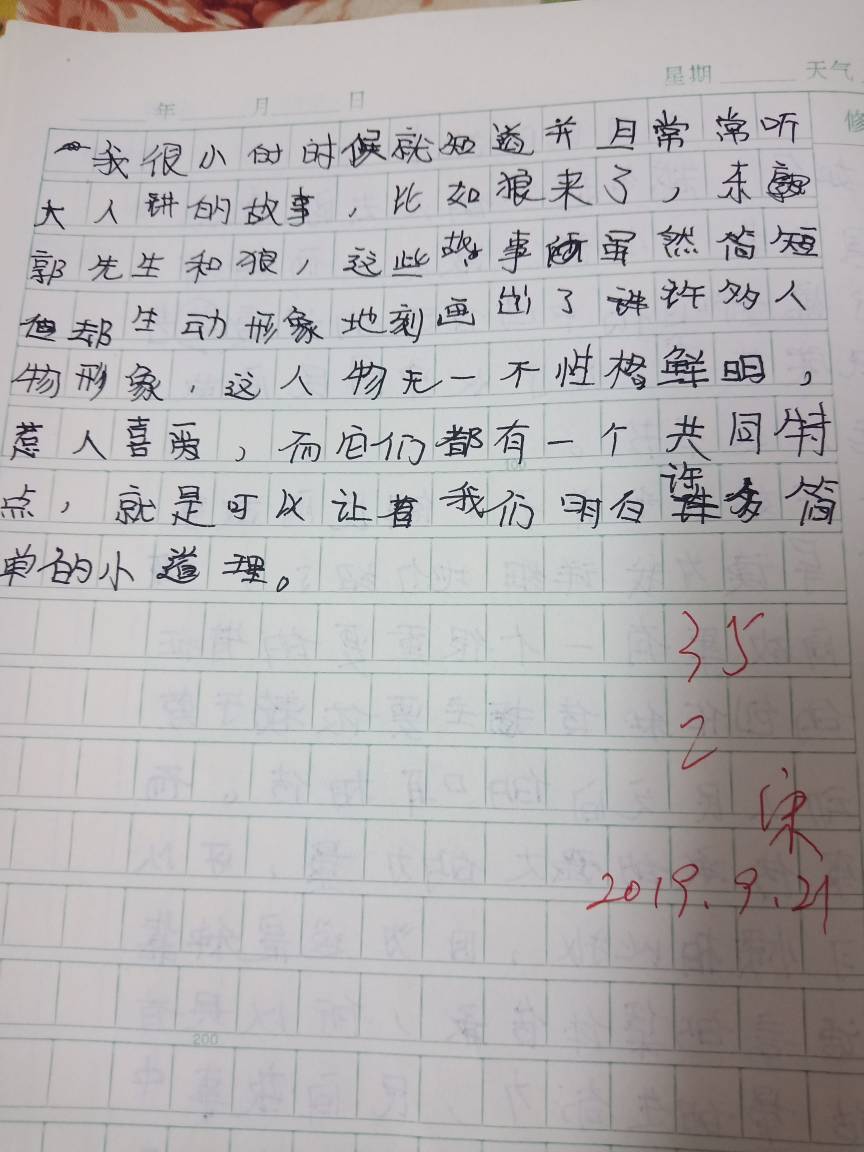 星期 天气
年 月 日
修
我很小的时候就知道并且常常听
大人讲的故事，比如狼来了，东
郭先生和狼，这些故事虽然简短
但却生动形象地刻画出了许多人
物形象，这人物无一不性格鲜明，
惹人喜爱，而它们都有一个共同特
点，就是可以让着我们明白许多简
单的小道理。
100
35
2
宋
2019.9.21
200